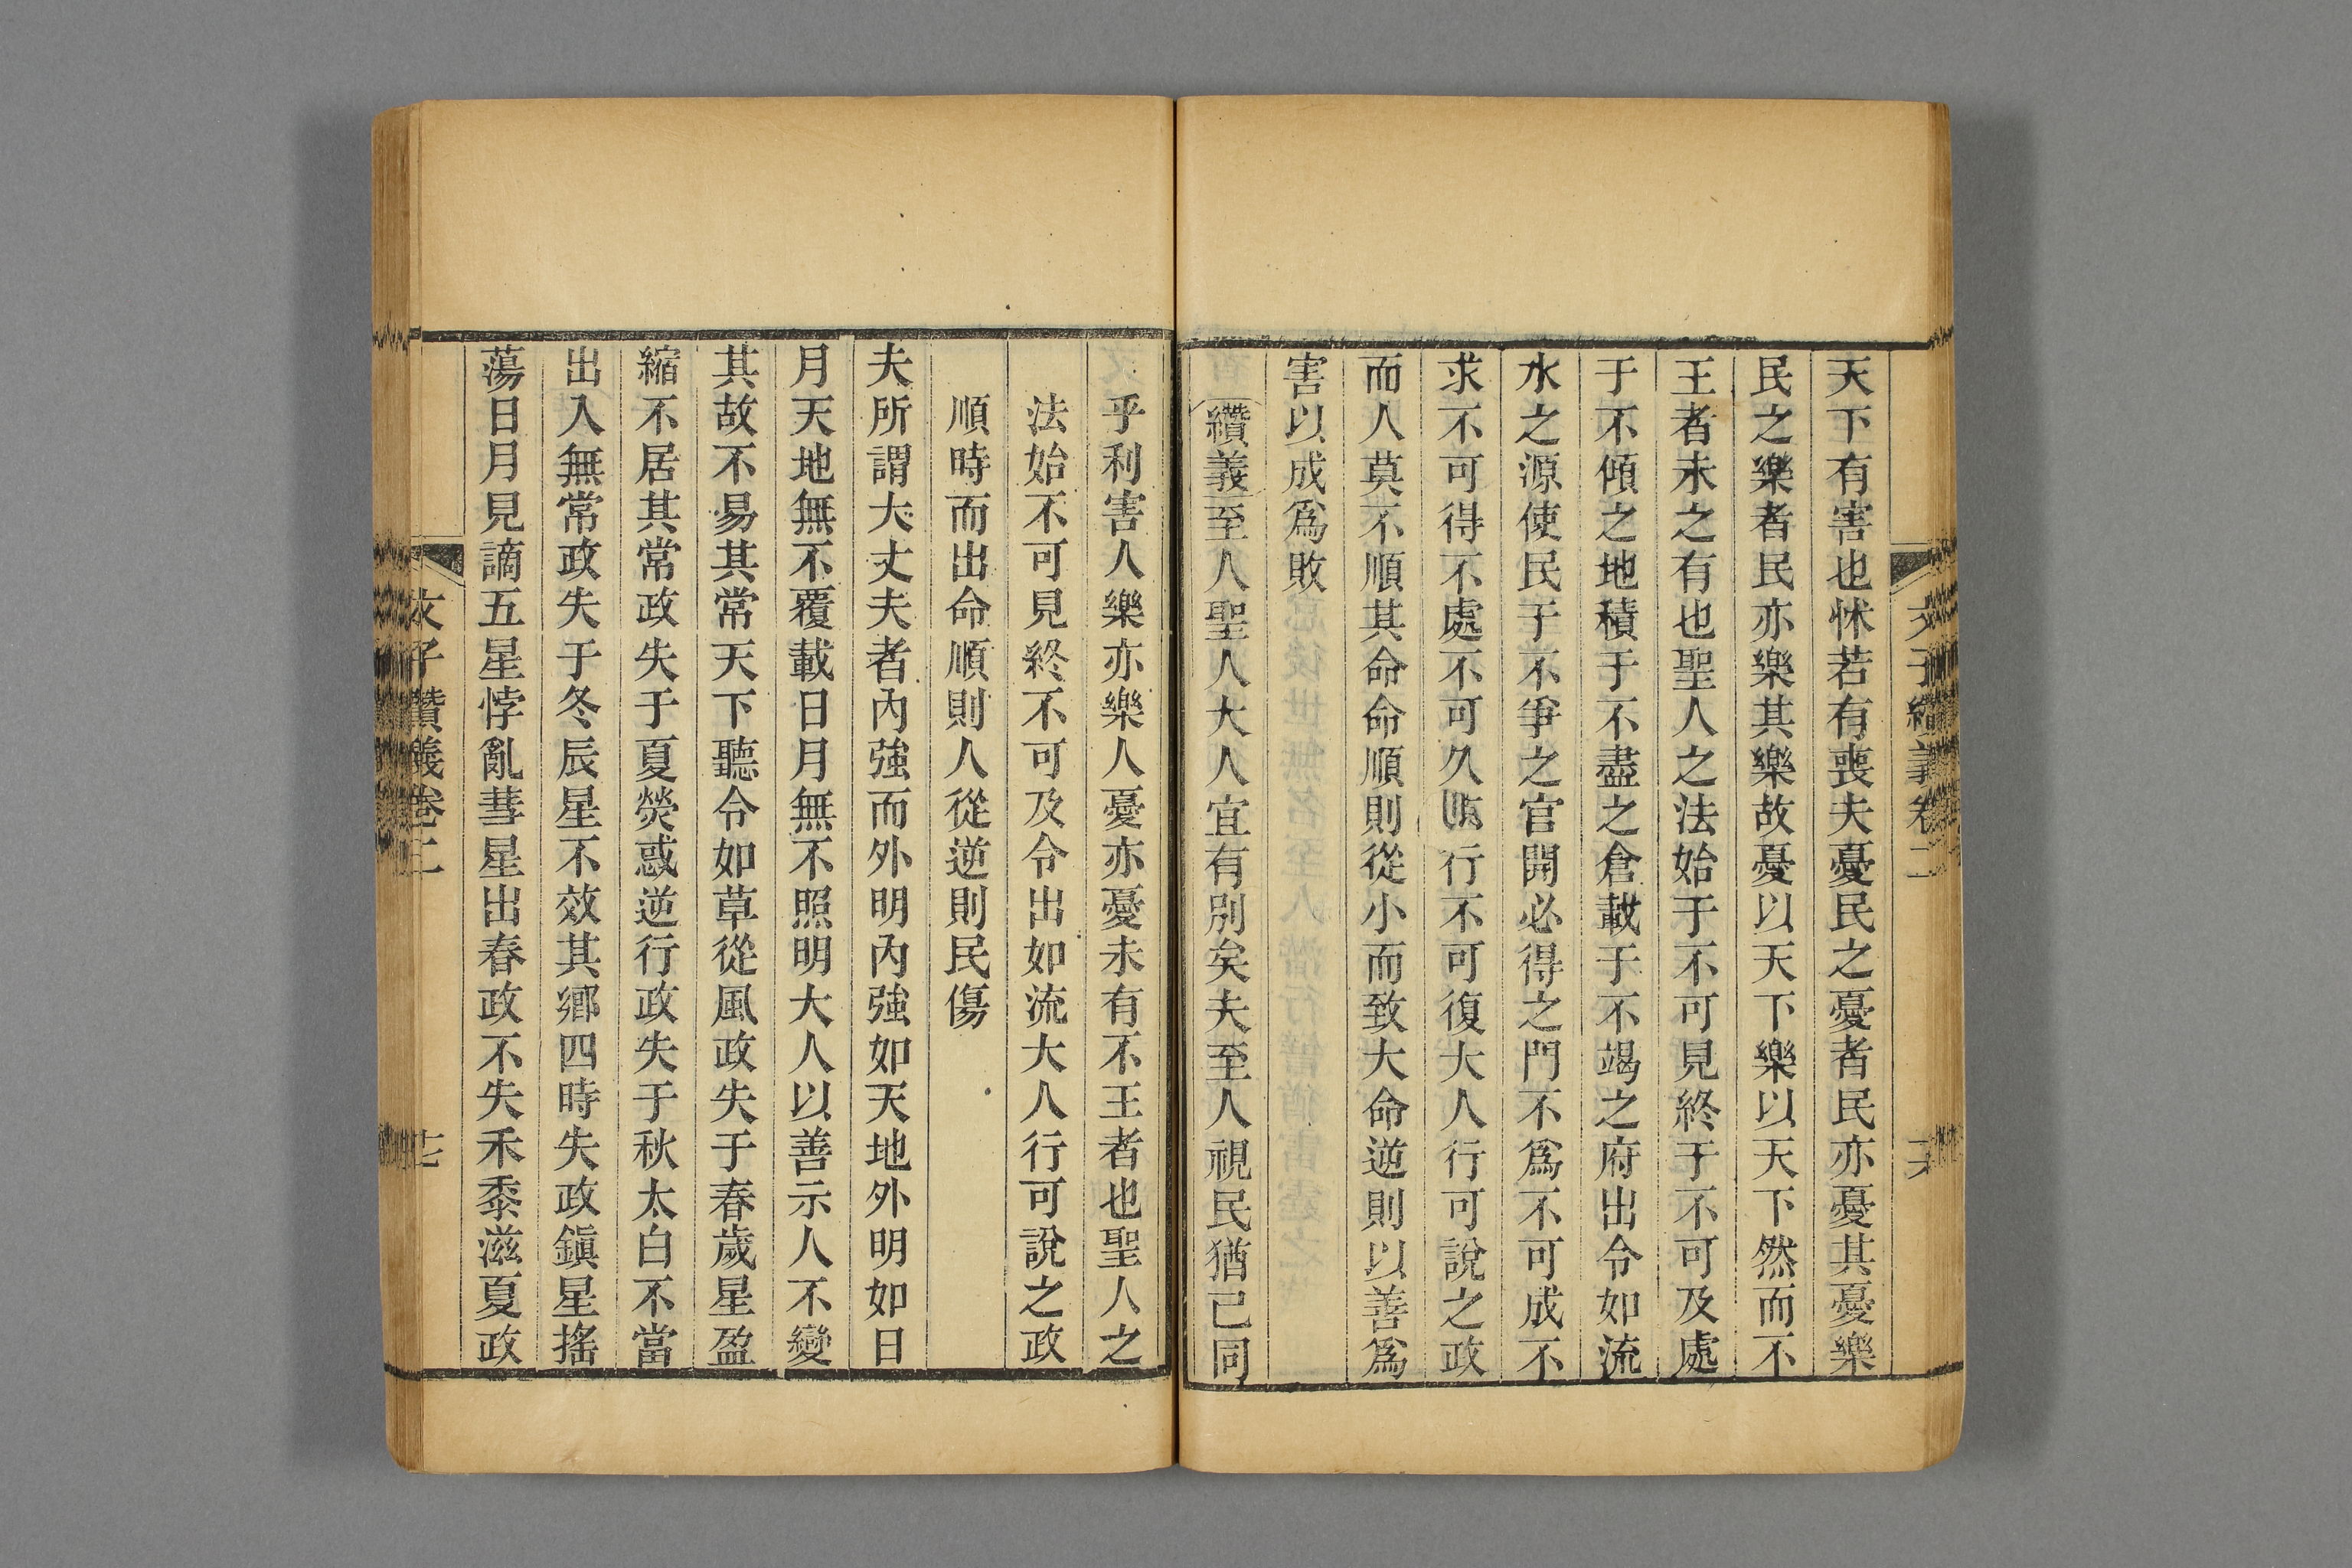 文子纘義卷二
十六
天下有害也怵若有喪夫憂民之憂者民亦憂其憂樂
民之樂者民亦樂其樂故憂以天下樂以天下然而不
王者未之有也聖人之法始于不可見終于不可及處
于不傾之地積于不盡之倉載于不竭之府出令如流
水之源使民于不爭之官開必得之門不爲不可成不
求不可得不處不可久不行不可復大人行可說之政
而人莫不順其命命順則從小而致大命逆則以善爲
害以成爲敗
纘義至人聖人大人宜有別矣夫至人視民猶己同
乎利害人樂亦樂人憂亦憂未有不王者也聖人之
法始不可見終不可及令出如流大人行可說之政
順時而出命順則人從逆則民傷
夫所謂大丈夫者內強而外明內強如天地外明如日
月天地無不覆載日月無不照明大人以善示人不變
其故不易其常天下聽令如草從風政失于春歲星盈
縮不居其常政失于夏熒惑逆行政失于秋太白不當
出入無常政失于冬辰星不效其鄉四時失政鎭星搖
蕩日月見謫五星悖亂彗星出春政不失禾黍滋夏政
文子纘義卷二
十七